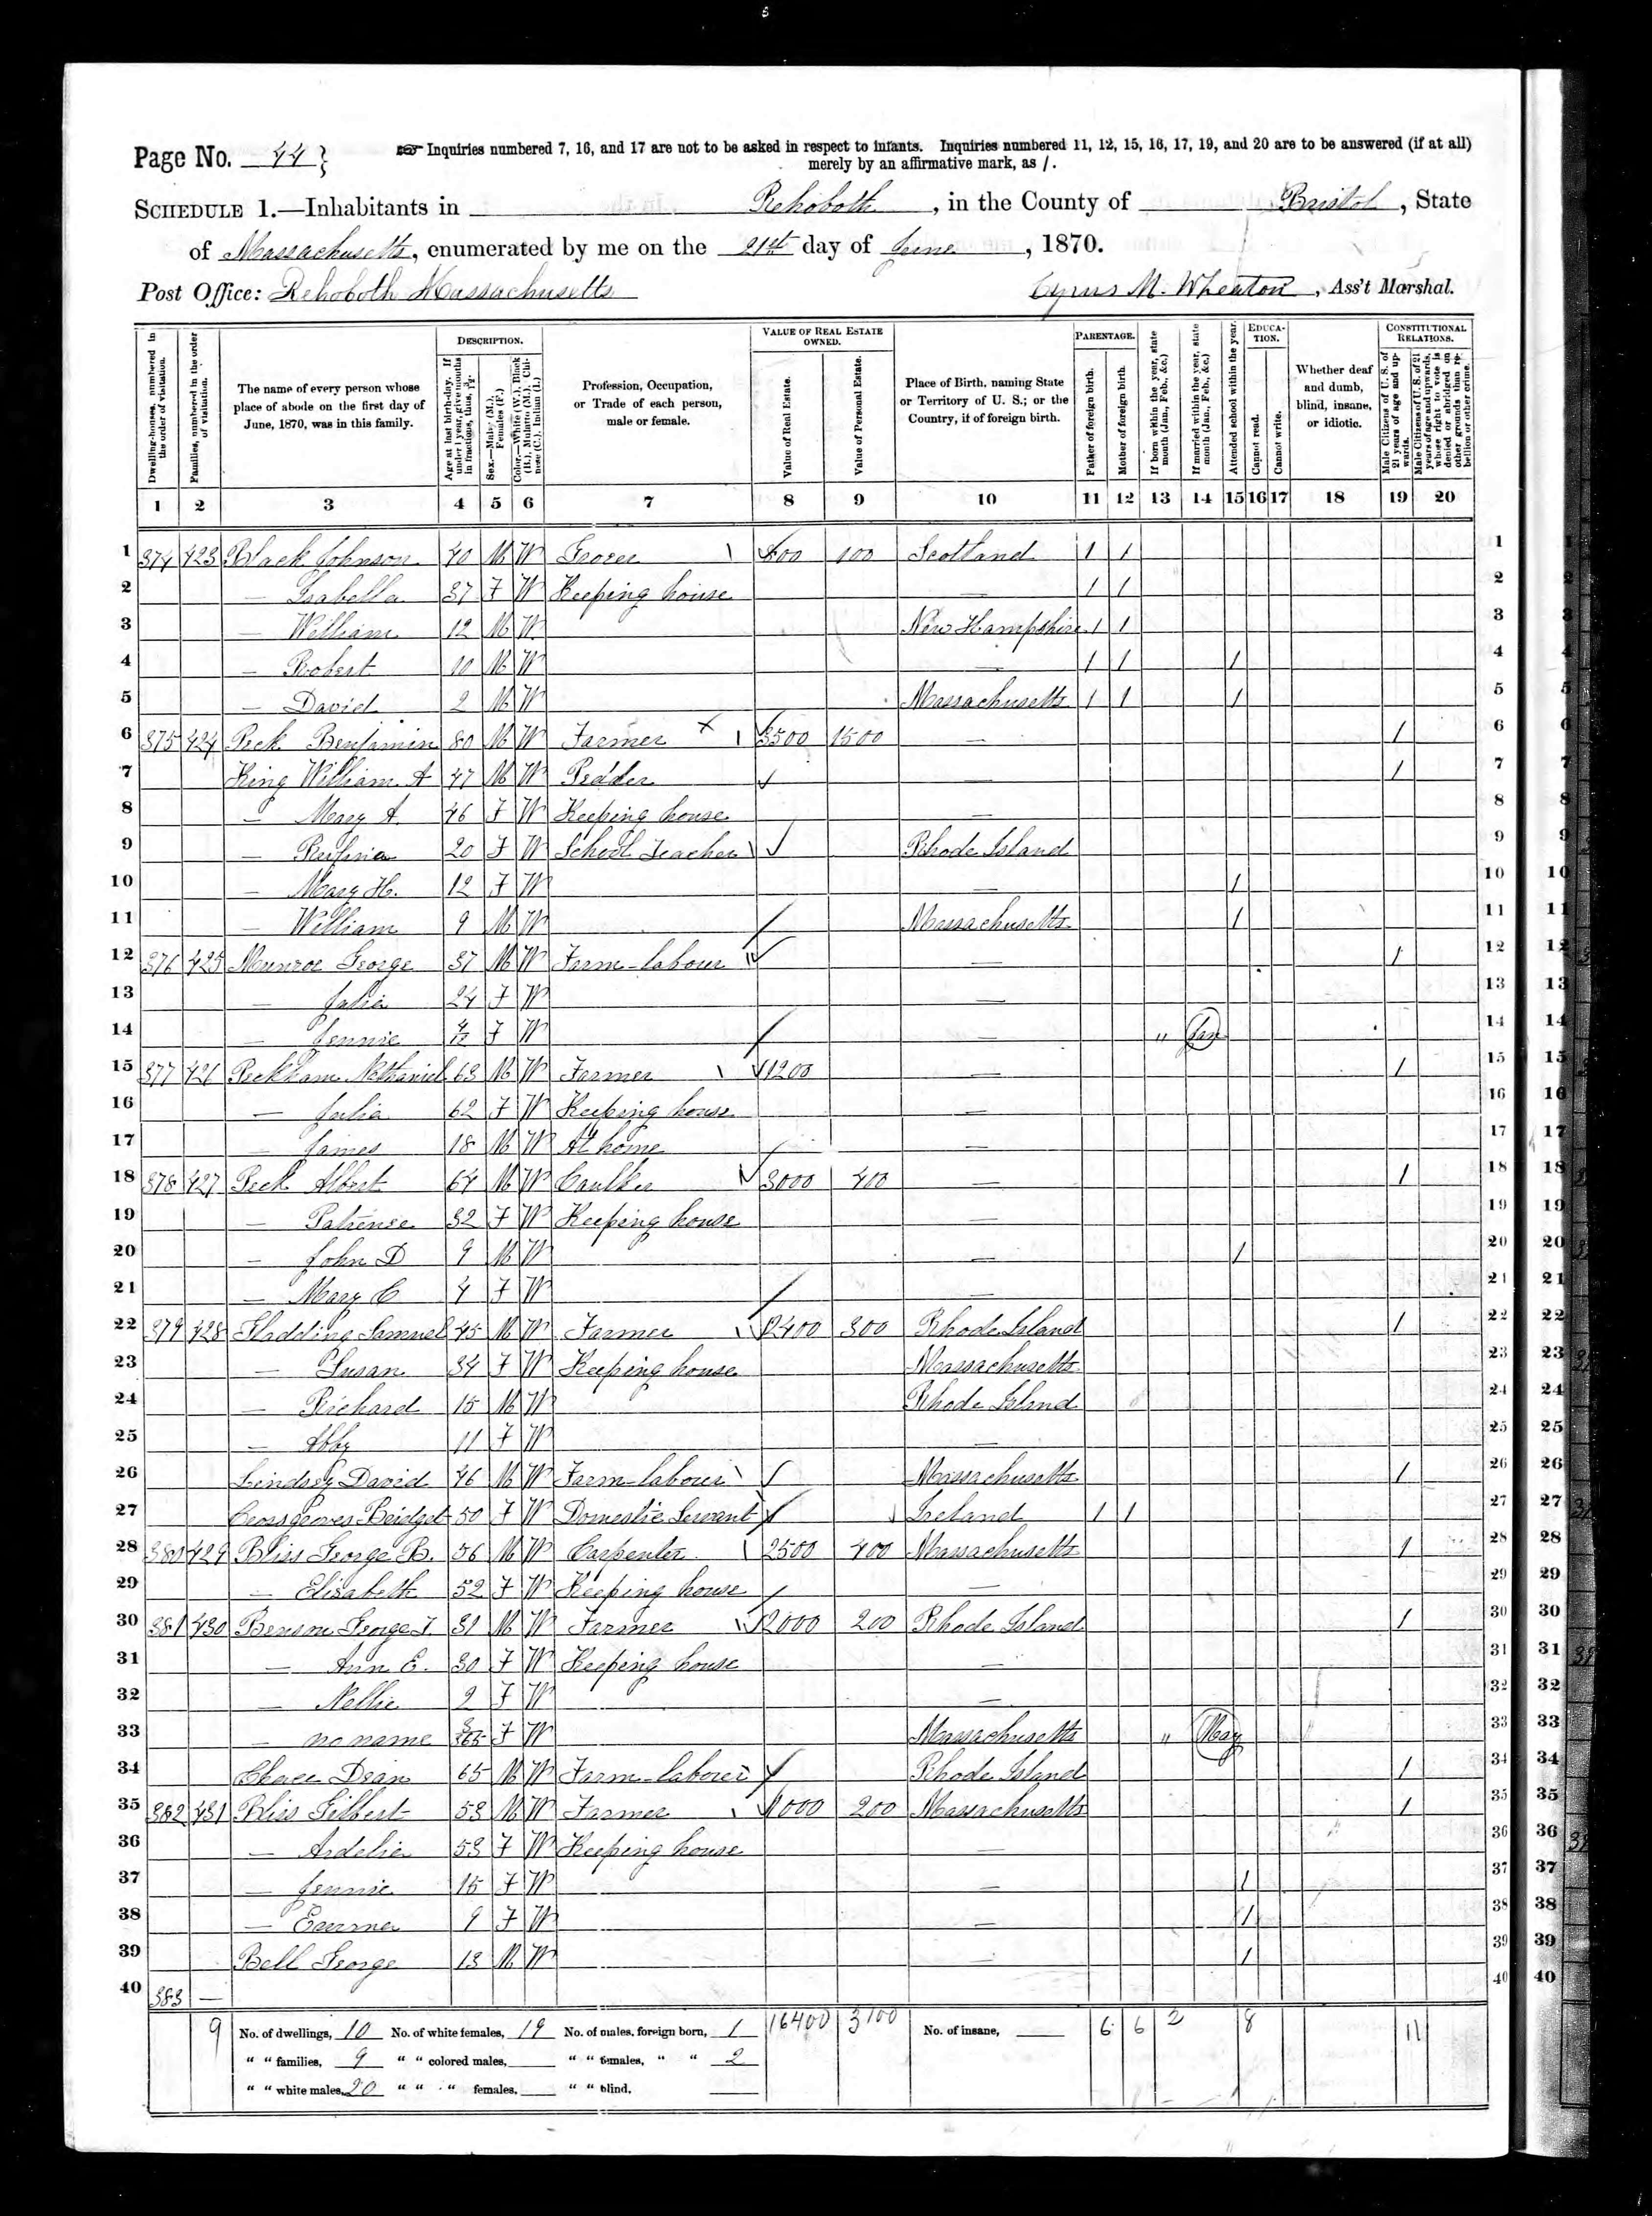 Page No. 44
☞ Inquiries numbered 7, 16, and 17 are not to be asked in respect to infants. Inquiries numbered 11, 12, 15, 16, 17, 19, and 20 are to be answered (if at all)
merely by an affirmative mark, as /.
SCHEDULE 1.—Inhabitants in Rehoboth, in the County of Bristol, State
of Massachusetts, enumerated by me on the 21st day of June, 1870.
Post Office: Rehoboth Massachusetts
Cyrus M. Wheaton, Ass't Marshal.
Dwelling-houses, numbered in the order of visitation.
Families, numbered in the order of visitation.
The name of every person whose place of abode on the first day of June, 1870, was in this family.
DESCRIPTION.
Age at last birth-day. If under 1 year, give months in fractions, thus, 3/12.
Sex.—Males (M.), Females (F.)
Color.—White (W.), Black (B.), Mulatto (M.), Chinese (C.), Indian (I.)
Profession, Occupation, or Trade of each person, male or female.
VALUE OF REAL ESTATE OWNED.
Value of Real Estate.
Value of Personal Estate.
Place of Birth, naming State or Territory of U. S.; or the Country, if of foreign birth.
PARENTAGE.
Father of foreign birth.
Mother of foreign birth.
If born within the year, state month (Jan., Feb., &c.)
If married within the year, state month (Jan., Feb., &c.)
Attended school within the year.
EDUCATION.
Cannot read.
Cannot write.
Whether deaf and dumb, blind, insane, or idiotic.
CONSTITUTIONAL RELATIONS.
Male Citizens of U. S. of 21 years of age and upwards.
Male Citizens of U. S. of 21 years of age and upwards, whose right to vote is denied or abridged on other grounds than rebellion or other crime.
1 2 3 4 5 6 7 8 9 10 11 12 13 14 15 16 17 18 19 20
1 374 423 Black Johnson 40 M W Grocer 800 100 Scotland / / 1
2 — Isabella 37 F W Keeping house — / / 2
3 — William 12 M W New Hampshire / / 3
4 — Robert 10 M W — / / / 4
5 — David 2 M W Massachusetts / / / 5
6 375 424 Peck Benjamin 80 M W Farmer 3500 1500 — / 6
7 King William A 47 M W Pedder — / 7
8 — Mary A. 46 F W Keeping house — 8
9 — 20 F W School Teacher Rhode Island 9
10 — Mary H. 12 F W — / 10
11 — William 9 M W Massachusetts / 11
12 376 425 Munroe George 37 M W Farm-labour — / 12
13 — Julia 24 F W — 13
14 — Jennie 4/12 F W — " Jan 14
15 377 426 Peckham Nathaniel 63 M W Farmer 1200 — / 15
16 — Julia 62 F W Keeping house — 16
17 — James 18 M W At home — 17
18 378 427 Peck Albert 64 M W Caulker 3000 400 — / 18
19 — Patience 32 F W Keeping house — 19
20 — John D 9 M W — / 20
21 — Mary C 4 F W — 21
22 379 428 Gladding Samuel 45 M W Farmer 2400 300 Rhode Island / 22
23 — Susan 34 F W Keeping house Massachusetts 23
24 — Richard 15 M W Rhode Island 24
25 — Abby 11 F W — 25
26 Lindsey David 46 M W Farm-labour Massachusetts / 26
27 Crossgroves Bridget 50 F W Domestic Servant Ireland / / 27
28 380 429 Bliss George B. 56 M W Carpenter 2500 400 Massachusetts / 28
29 — Elisabeth 52 F W Keeping house — 29
30 381 430 Benson George T. 31 M W Farmer 2000 200 Rhode Island / 30
31 — Ann E. 30 F W Keeping house — 31
32 — Nellie 2 F W — 32
33 — no name 3/365 F W Massachusetts " May 33
34 Chace Dean 65 M W Farm-laborer Rhode Island / 34
35 382 431 Bliss Gilbert 53 M W Farmer 1000 200 Massachusetts / 35
36 — Ardelia 53 F W Keeping house — 36
37 — Jennie 15 F W — / 37
38 — Emma 9 F W — / 38
39 Bell George 13 M W — / 39
40 383 — 40
9 No. of dwellings, 10 No. of white females, 19 No. of males, foreign born, 1 16400 3100 No. of insane, 6 6 2 8 11
" " families, 9 " " colored males, " " females, " " 2
" " white males, 20 " " " females, " " blind,